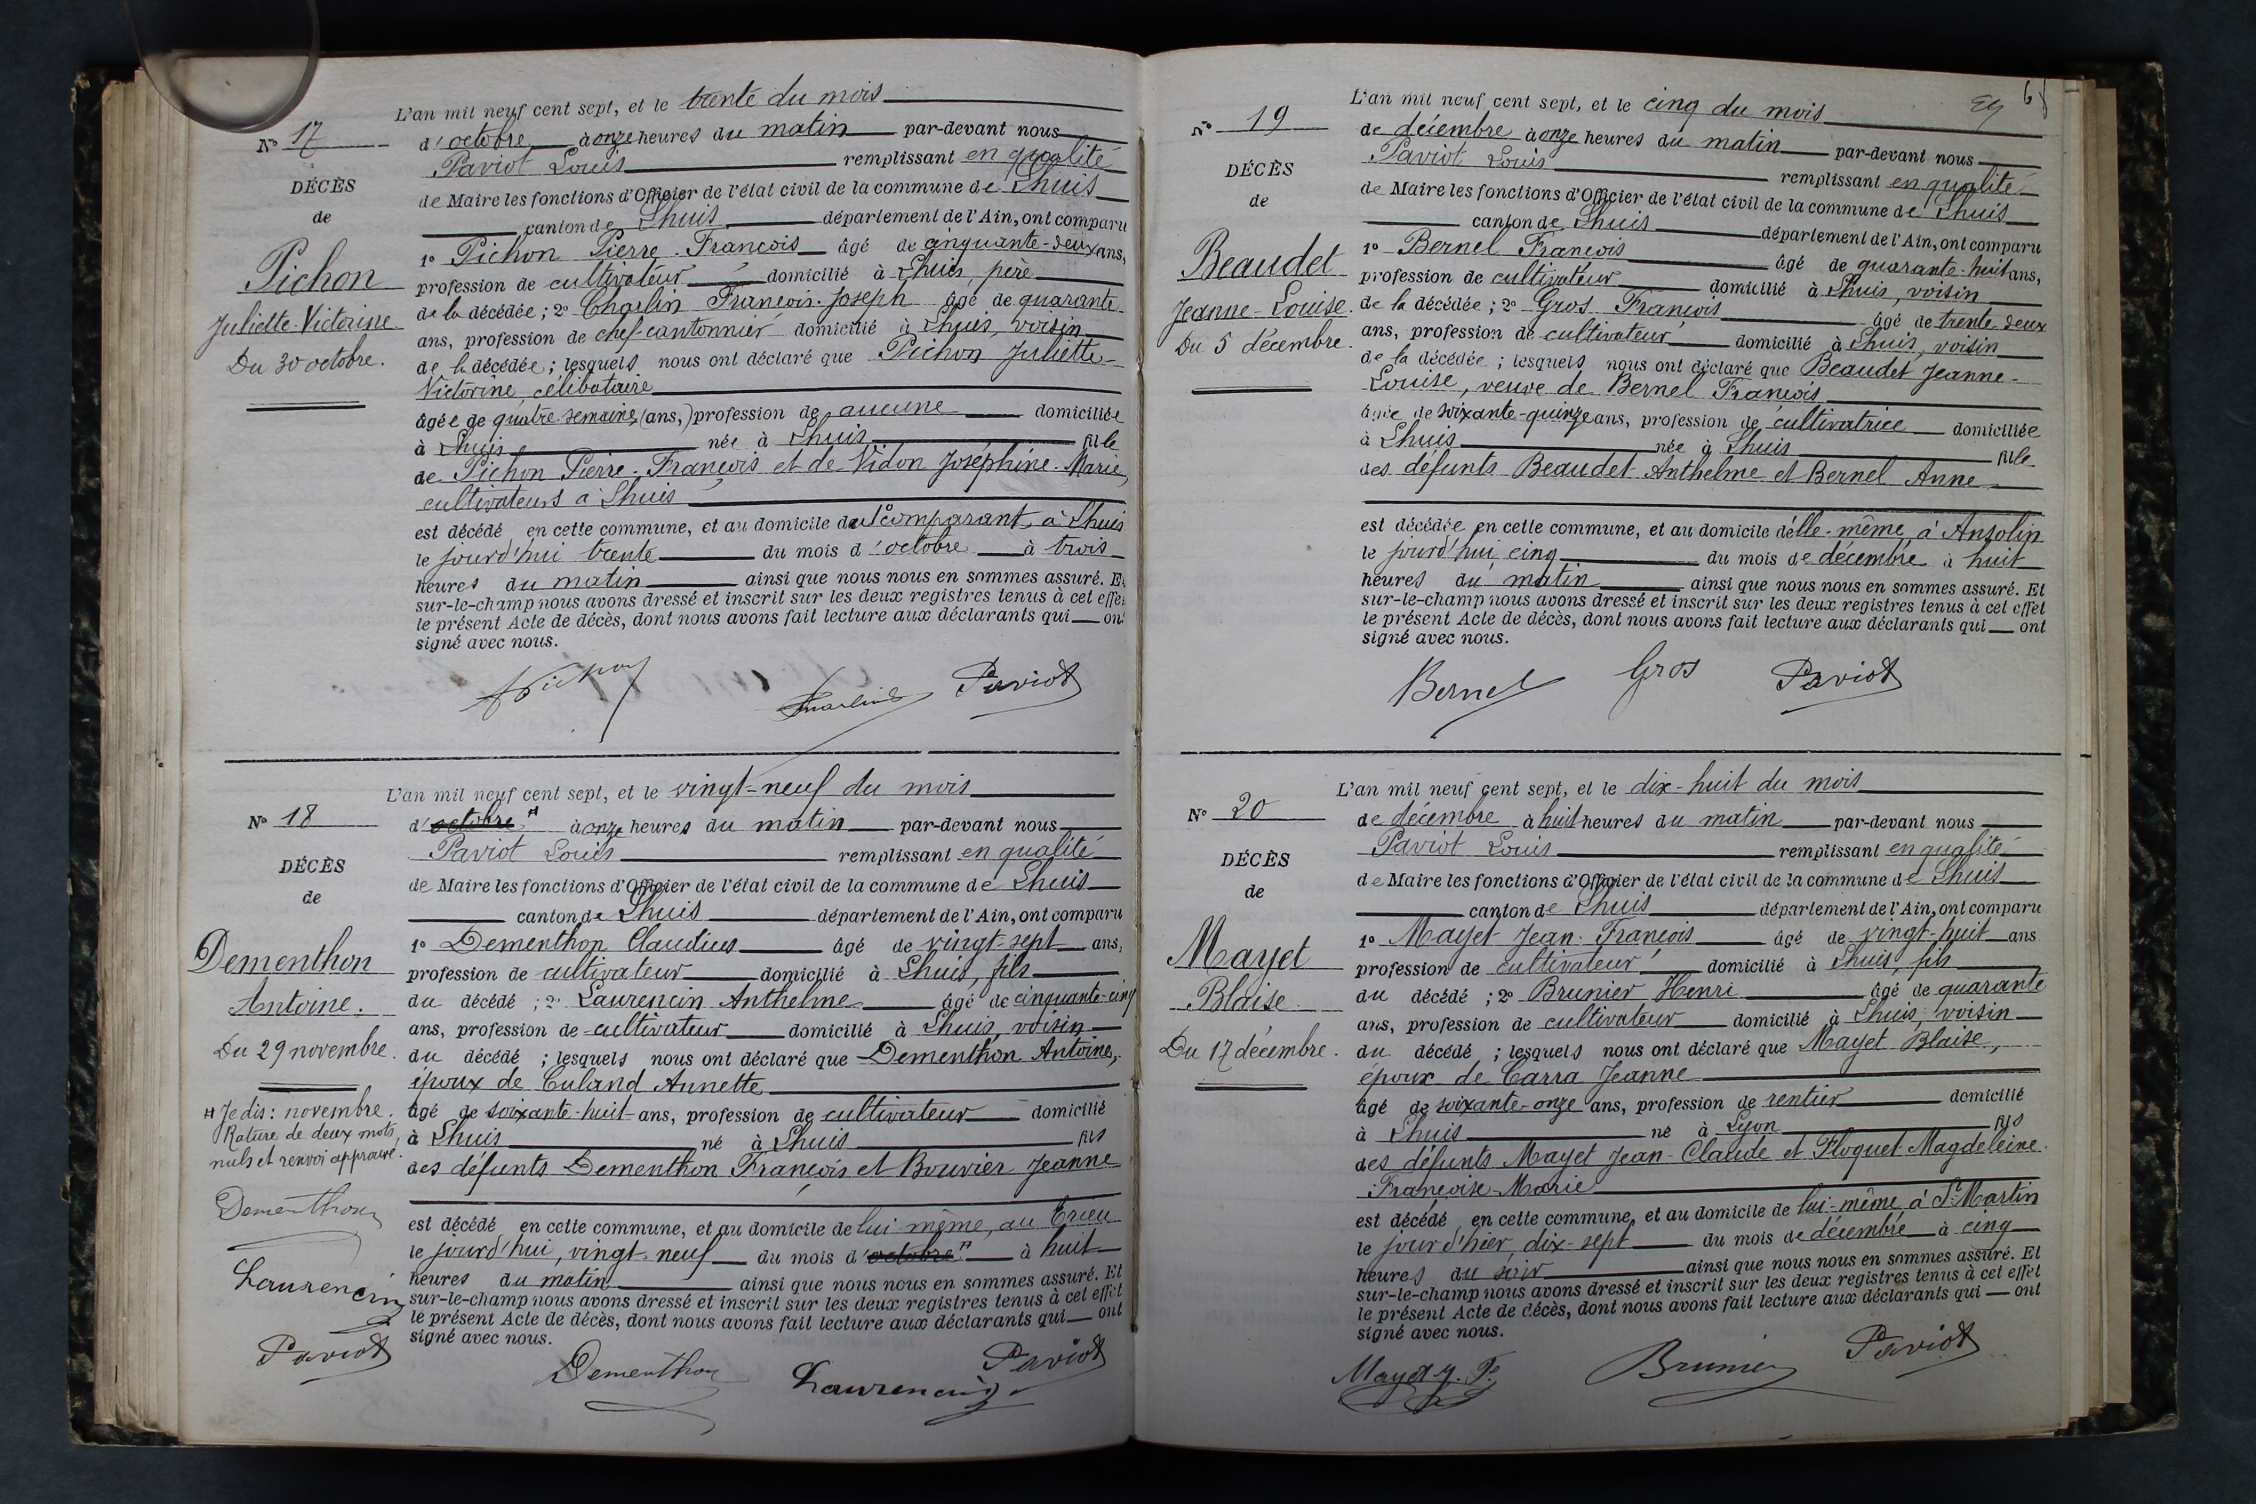 L'an mil neuf cent sept, et le trente du mois
N° 17
d'octobre à onze heures du matin par-devant nous
Paviot Louis remplissant en qualité
DÉCÈS
de Maire les fonctions d'Officier de l'état civil de la commune de Lhuis
de
canton de Lhuis département de l'Ain, ont comparu
1° Pichon Pierre-François âgé de cinquante-deux ans,
Pichon
profession de cultivateur domicilié à Lhuis, père
de la décédée ; 2° Charlin François-Joseph âgé de quarante
Juliette-Victorine
ans, profession de chef-cantonnier domicilié à Lhuis, voisin
Du 30 octobre.
de la décédée ; lesquels nous ont déclaré que Pichon Juliette-
Victorine, célibataire
âgée de quatre semaines (ans,) profession de aucune domiciliée
à Lhuis née à Lhuis fille
de Pichon Pierre-François et de Vidon Joséphine-Marie,
cultivateurs à Lhuis
est décédé en cette commune, et au domicile du 1er comparant, à Lhuis
le jourd'hui trente du mois d'octobre à trois
heures du matin ainsi que nous nous en sommes assuré. Et
sur-le-champ nous avons dressé et inscrit sur les deux registres tenus à cet effet
le présent Acte de décès, dont nous avons fait lecture aux déclarants qui ont
signé avec nous.
Pichon Charlin Paviot
L'an mil neuf cent sept, et le vingt-neuf du mois
N° 18
d'octobre # à onze heures du matin par-devant nous
Paviot Louis remplissant en qualité
DÉCÈS
de Maire les fonctions d'Officier de l'état civil de la commune de Lhuis
de
canton de Lhuis département de l'Ain, ont comparu
1° Dementhon Claudius âgé de vingt-sept ans,
Dementhon
profession de cultivateur domicilié à Lhuis, fils
Antoine.
du décédé ; 2° Laurencin Anthelme âgé de cinquante-cinq
ans, profession de cultivateur domicilié à Lhuis, voisin
Du 29 novembre.
du décédé ; lesquels nous ont déclaré que Dementhon Antoine,
époux de Culand Annette
# Je dis : novembre.
Rature de deux mots
nuls et renvoi approuvé.
âgé de soixante-huit ans, profession de cultivateur domicilié
à Lhuis né à Lhuis fils
des défunts Dementhon François et Bouvier Jeanne
Dementhon
est décédé en cette commune, et au domicile de lui-même, au Crieu
le jourd'hui, vingt-neuf du mois d'octobre # à huit
Laurencin
heures du matin ainsi que nous nous en sommes assuré. Et
sur-le-champ nous avons dressé et inscrit sur les deux registres tenus à cet effet
le présent Acte de décès, dont nous avons fait lecture aux déclarants qui ont
signé avec nous.
Paviot
Dementhon Laurencin Paviot
L'an mil neuf cent sept, et le cinq du mois
N° 19
de décembre à onze heures du matin par-devant nous
Paviot Louis remplissant en qualité
DÉCÈS
de Maire les fonctions d'Officier de l'état civil de la commune de Lhuis
de
canton de Lhuis département de l'Ain, ont comparu
1° Bernel François âgé de quarante-huit ans,
Beaudet
profession de cultivateur domicilié à Lhuis, voisin
Jeanne-Louise.
de la décédée ; 2° Gros François âgé de trente-deux
Du 5 décembre.
ans, profession de cultivateur domicilié à Lhuis, voisin
de la décédée ; lesquels nous ont déclaré que Beaudet Jeanne-
Louise, veuve de Bernel François
âgée de soixante-quinze ans, profession de cultivatrice domiciliée
à Lhuis née à Lhuis fille
des défunts Beaudet Anthelme et Bernel Anne
est décédée en cette commune, et au domicile d'elle-même, à Ansolin
le jourd'hui cinq du mois de décembre à huit
heures du matin ainsi que nous nous en sommes assuré. Et
sur-le-champ nous avons dressé et inscrit sur les deux registres tenus à cet effet
le présent Acte de décès, dont nous avons fait lecture aux déclarants qui ont
signé avec nous.
Bernel Gros Paviot
L'an mil neuf cent sept, et le dix-huit du mois
N° 20
de décembre à huit heures du matin par-devant nous
Paviot Louis remplissant en qualité
DÉCÈS
de Maire les fonctions d'Officier de l'état civil de la commune de Lhuis
de
canton de Lhuis département de l'Ain, ont comparu
1° Mayet Jean-François âgé de vingt-huit ans
Mayet
profession de cultivateur domicilié à Lhuis, fils
Blaise
du décédé ; 2° Brunier Henri âgé de quarante
ans, profession de cultivateur domicilié à Lhuis, voisin
Du 17 décembre.
du décédé ; lesquels nous ont déclaré que Mayet Blaise,
époux de Carra Jeanne
âgé de soixante-onze ans, profession de rentier domicilié
à Lhuis né à Lyon fils
des défunts Mayet Jean-Claude et Floquet Magdeleine
Françoise-Marie
est décédé en cette commune, et au domicile de lui-même, à St Martin
le jour d'hier, dix-sept du mois de décembre à cinq
heures du soir ainsi que nous nous en sommes assuré. Et
sur-le-champ nous avons dressé et inscrit sur les deux registres tenus à cet effet
le présent Acte de décès, dont nous avons fait lecture aux déclarants qui ont
signé avec nous.
Mayet J. F. Brunier Paviot